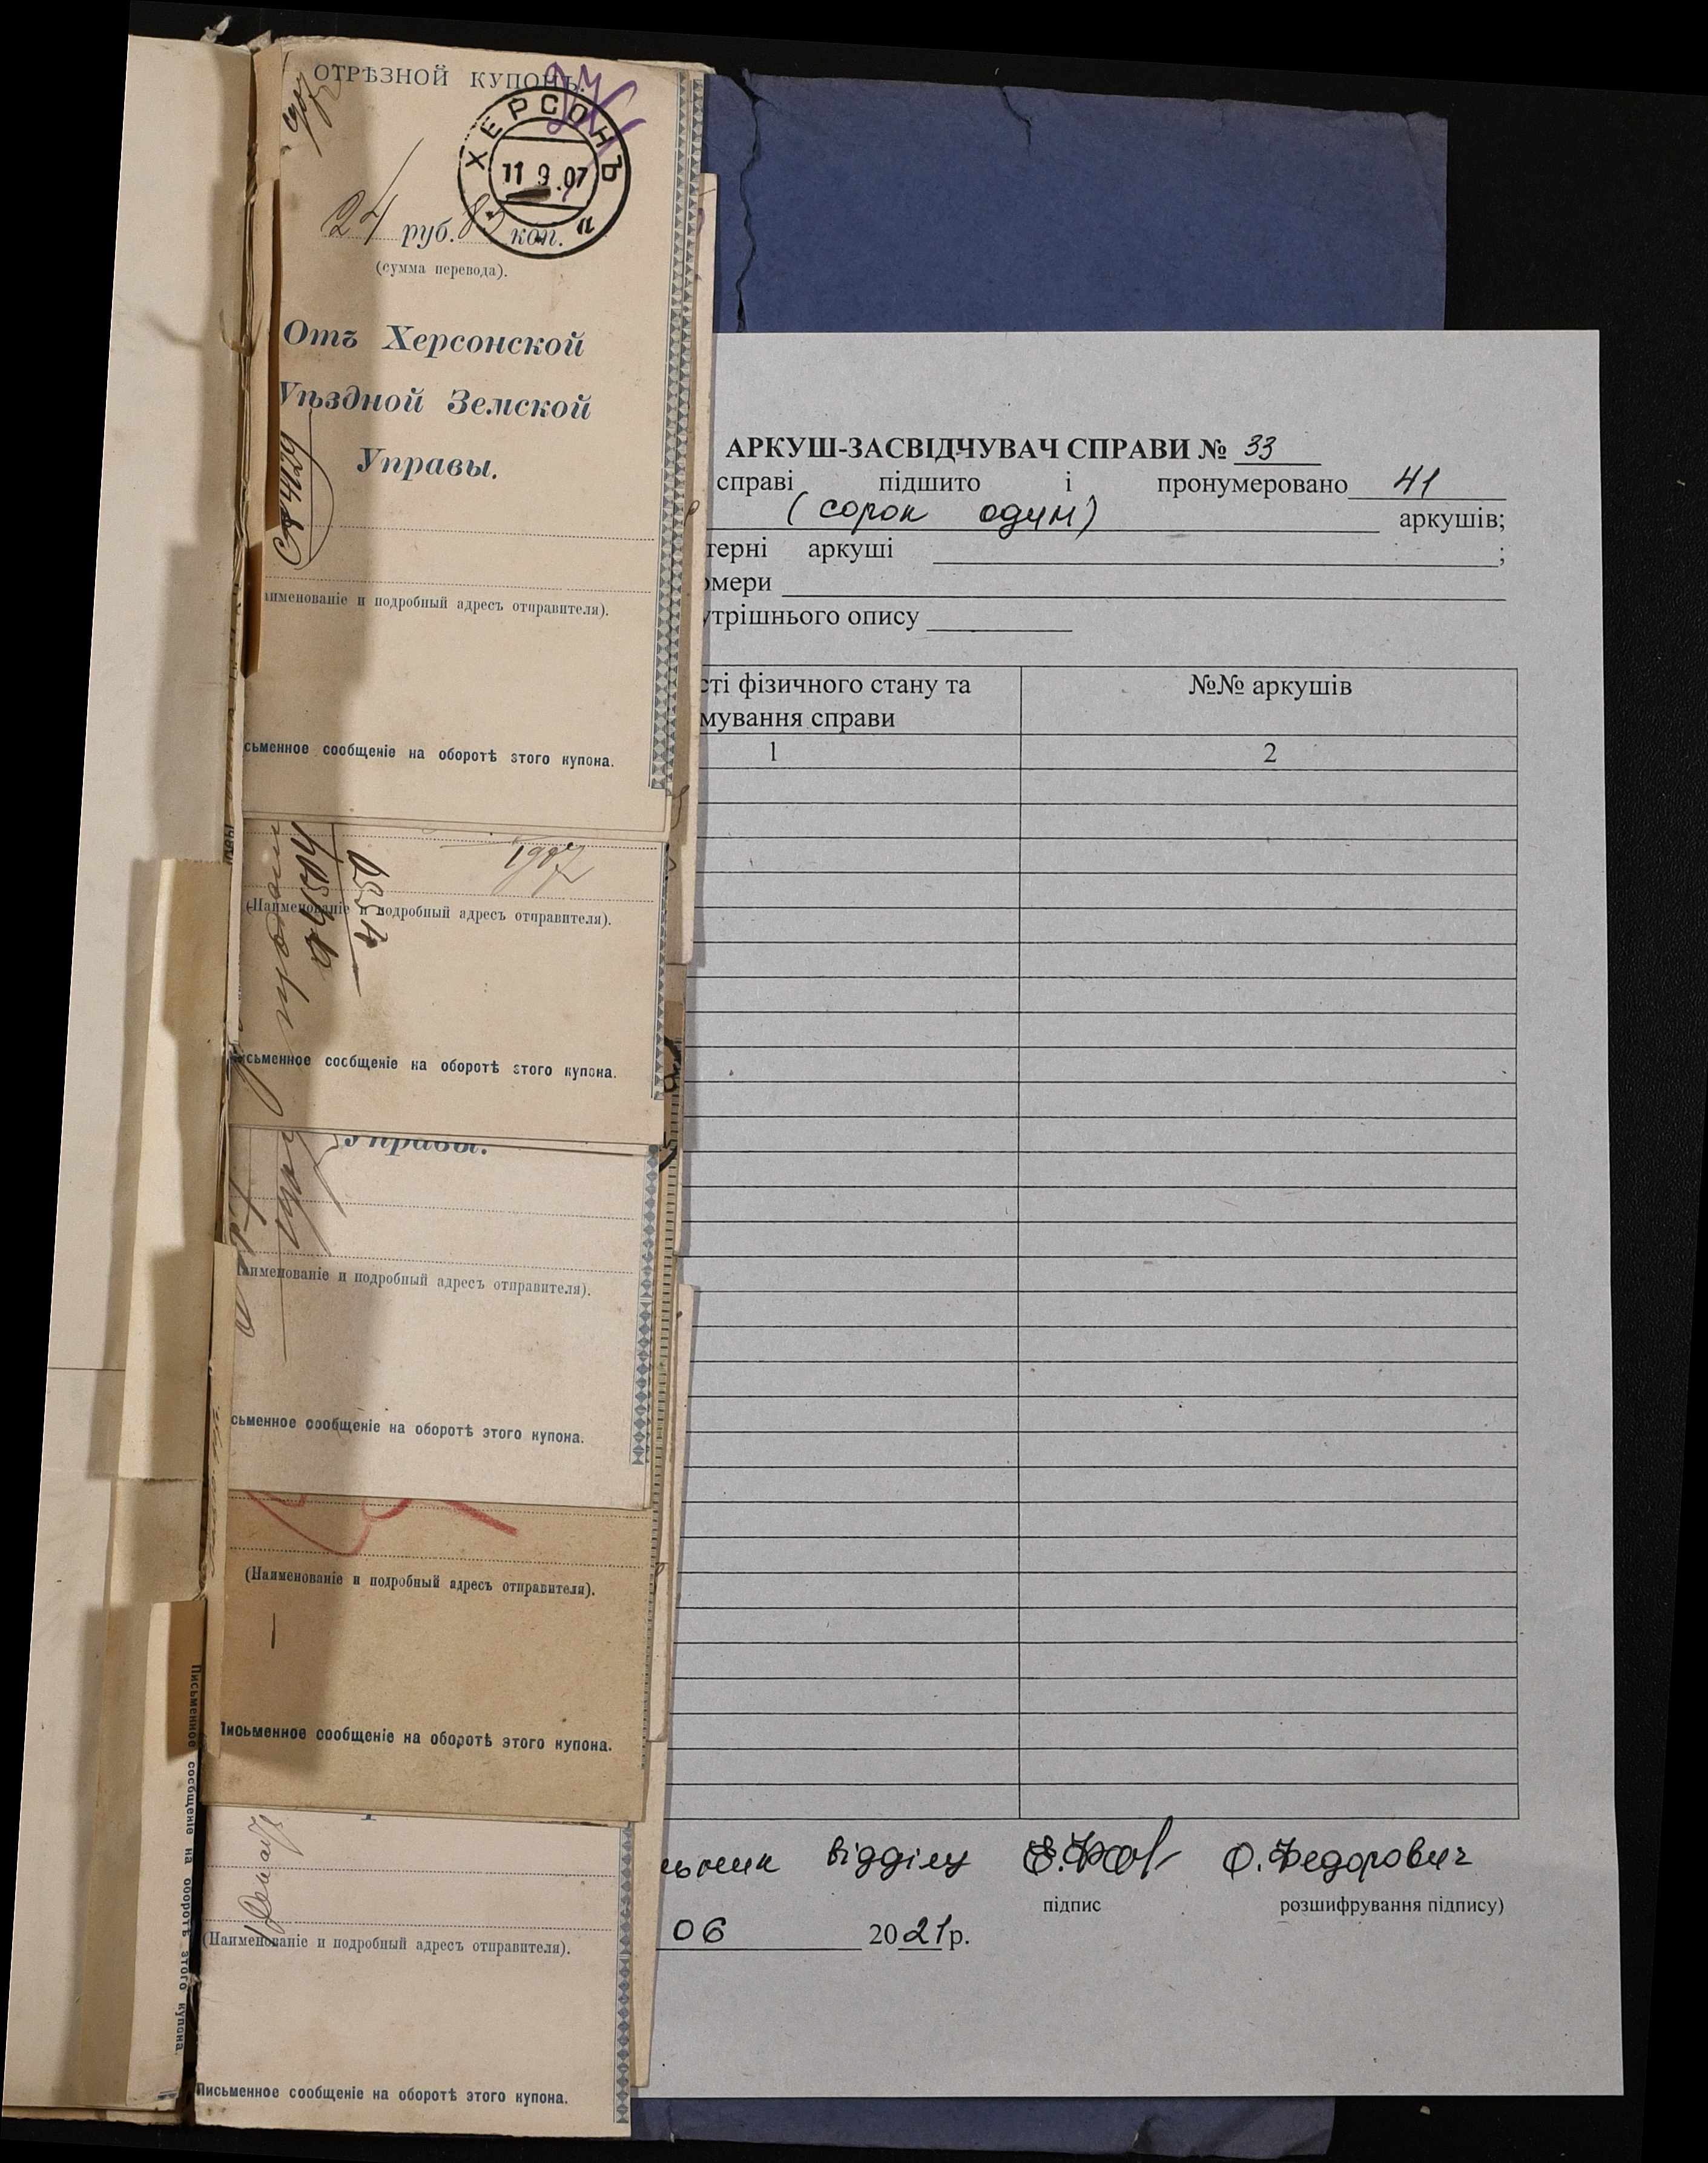 ОТРѢЗНОЙ КУПОНЪ.
ХЕРСОНЪ
11 9 .07
24 руб. коп.
(сумма перевода).
Отъ Херсонской
Уѣздной Земской
Управы.
именованіе и подробный адресъ отправителя).
сьменное сообщеніе на оборотѣ этого купона.
1907
(Наименованіе и подробный адресъ отправителя).
сьменное сообщеніе на оборотѣ этого купона.
Управы.
аименованіе и подробный адресъ отправителя).
сьменное сообщеніе на оборотѣ этого купона.
(Наименованіе и подробный адресъ отправителя).
Письменное сообщеніе на оборотѣ этого купона.
Письменное сообщеніе на оборотѣ этого купона.
(Наименованіе и подробный адресъ отправителя).
Письменное сообщеніе на оборотѣ этого купона.
АРКУШ-ЗАСВІДЧУВАЧ СПРАВИ № 33
справі підшито і пронумеровано 41
(сорок один) аркушів;
терні аркуші ;
омери
утрішнього опису
сті фізичного стану та
мування справи
№№ аркушів
1
2
льник відділу О.Федорович
підпис розшифрування підпису)
06 2021р.